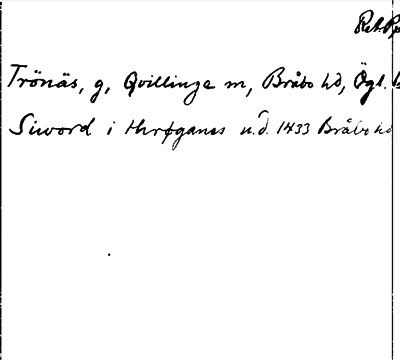 Trönäs, g, Qvillinge m, Bråbo hd, Ögl.
Siword i thrøganes u.d. 1433 Bråbo hd